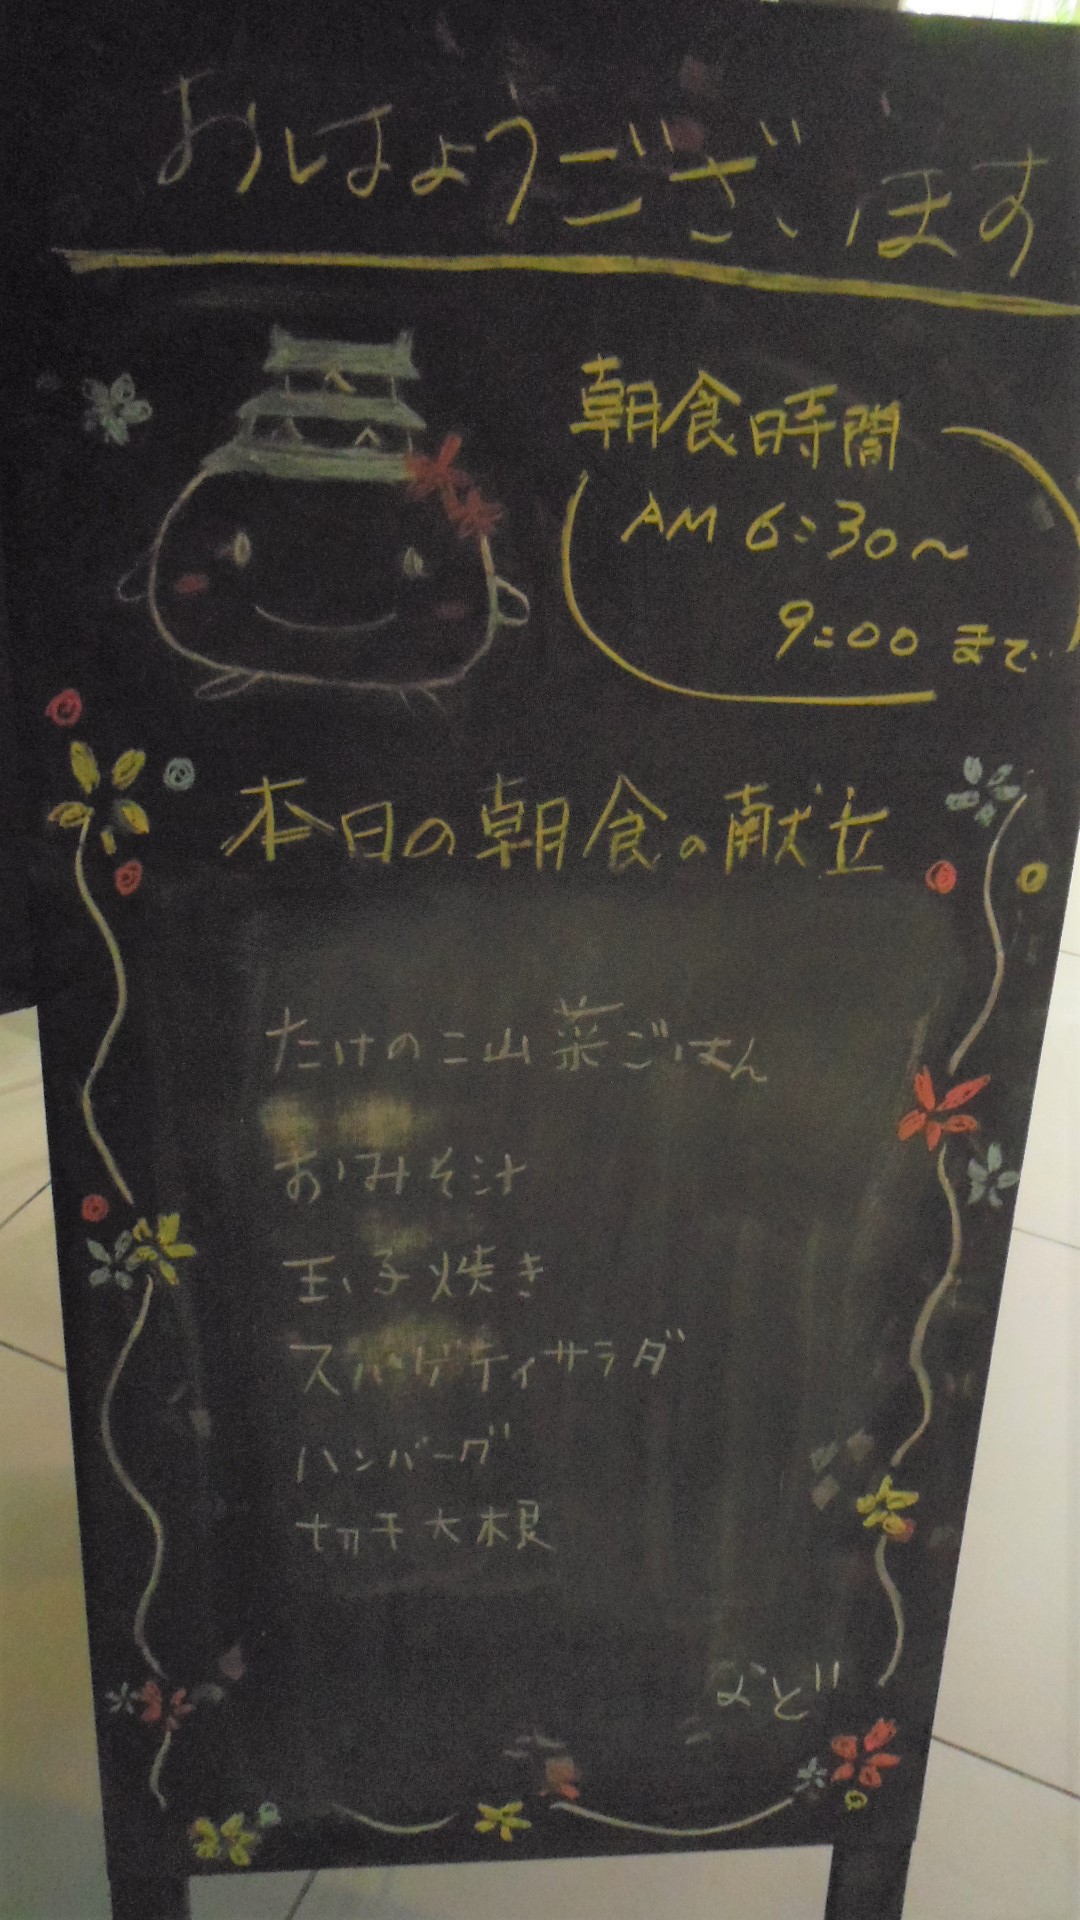 おはようございます
朝食時間
AM 6:30〜
9:00 まで
本日の朝食の献立
たけのこ山菜ごはん
おみそ汁
玉子焼き
スパゲティサラダ
ハンバーグ
切干大根
など